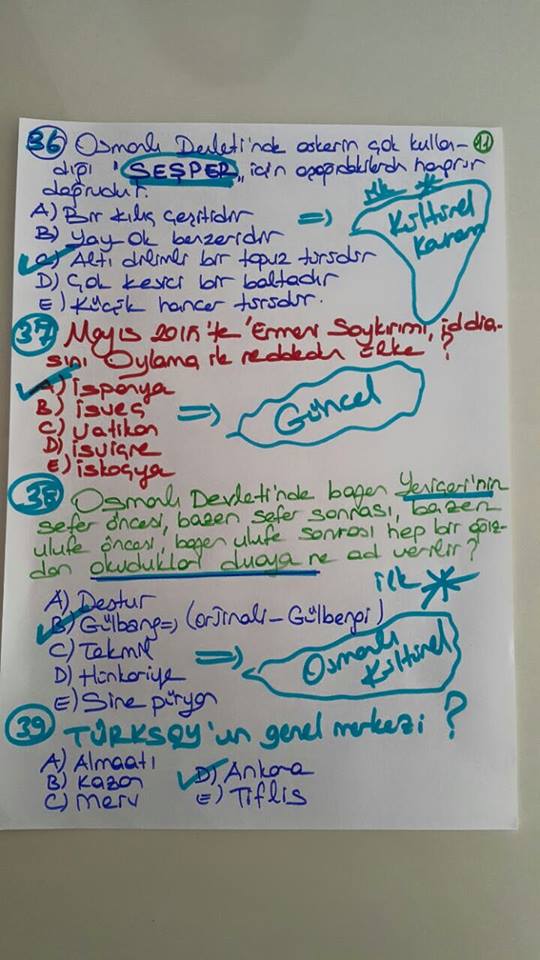 36 Osmanlı Devleti'nde askerin çok kullan- 11
dığı "ŞEŞPER" için aşağıdakilerden hangisi
doğrudur?
A) Bir kılıç çeşitidir
B) Yay-Ok benzeridir
C) Altı dilimli bir topuz türüdür
D) Çok kesici bir baltadır
E) Küçük hançer türüdür.
=> ilk *
Kültürel
Kavram
37 Mayıs 2015'te 'Ermeni Soykırımı, iddia-
sını Oylama ile reddeden Ülke?
A) İspanya
B) İsveç
C) Vatikan
D) İsviçre
E) İskoçya
=> Güncel
38 Osmanlı Devleti'nde bazen Yeniçeri'nin
sefer öncesi, bazen sefer sonrası, bazen
ulufe öncesi, bazen ulufe sonrası hep bir ağız-
dan okudukları duaya ne ad verilir?
A) Destur
B) Gülbang => (orjinali - Gülbengi)
C) Tekmil
D) Hünkariye
E) Sine püryan
ilk *
=> Osmanlı
Kültürel
39 TÜRKSOY'un genel merkezi?
A) Almaatı
B) Kazan
C) Merv
D) Ankara
E) Tiflis